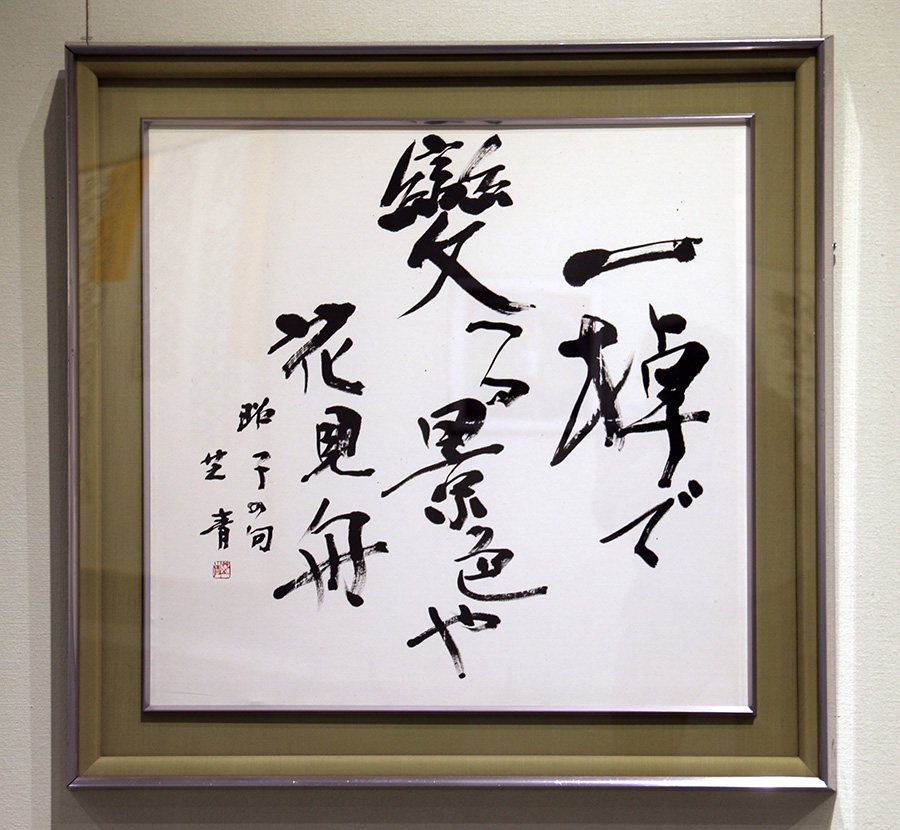 一棹で
變る景色や
花見舟
昭子の句
芝青